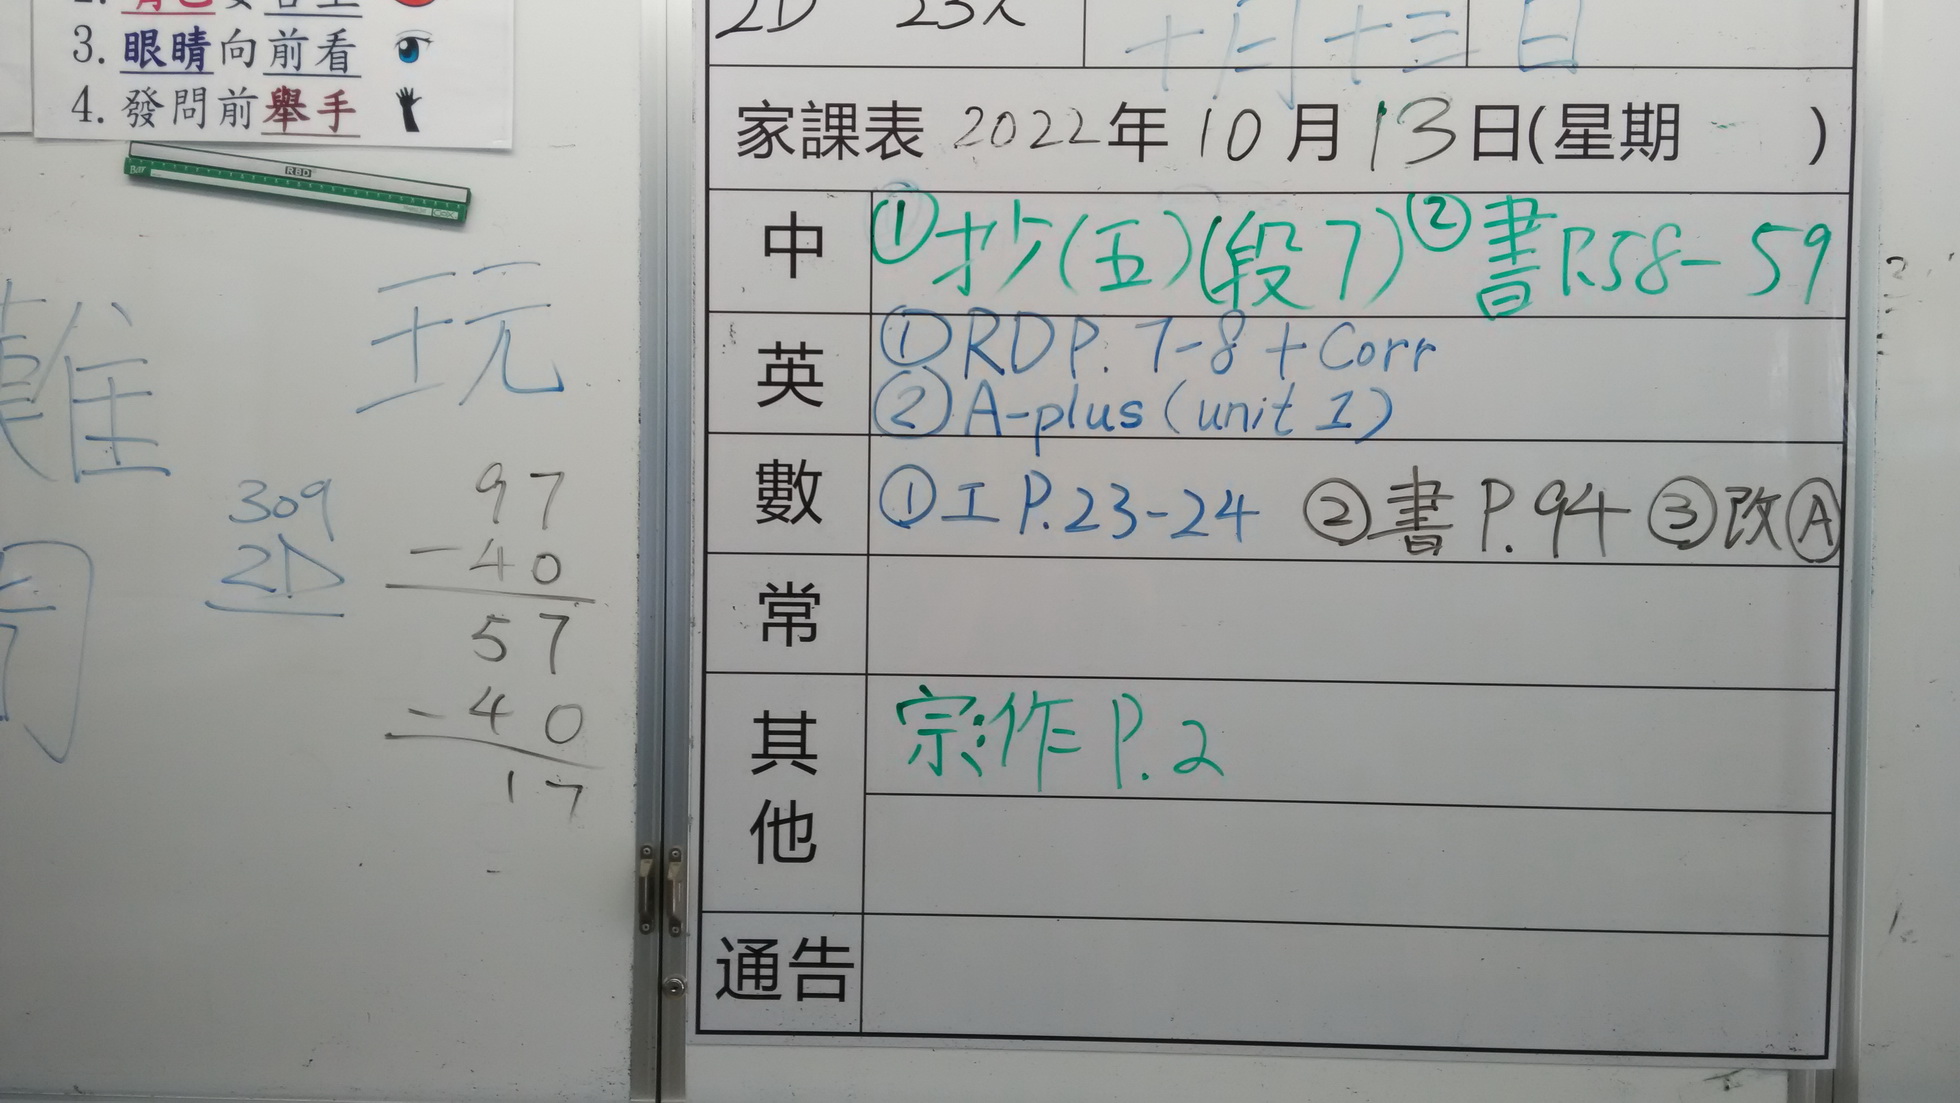 3. 眼睛向前看
4. 發問前舉手
RBD
難
玩
309
2D
97
-40
57
-40
17
2D 23人
十月十三日
家課表 2022年10月13日(星期 )
中 ①抄(五)(段7) ②書P.58-59
英 ①RD P. 7-8 + Corr
②A-plus (unit 1)
數 ①工 P.23-24 ②書 P.94 ③改Ⓐ
常
其他 宗:作 P.2
通告